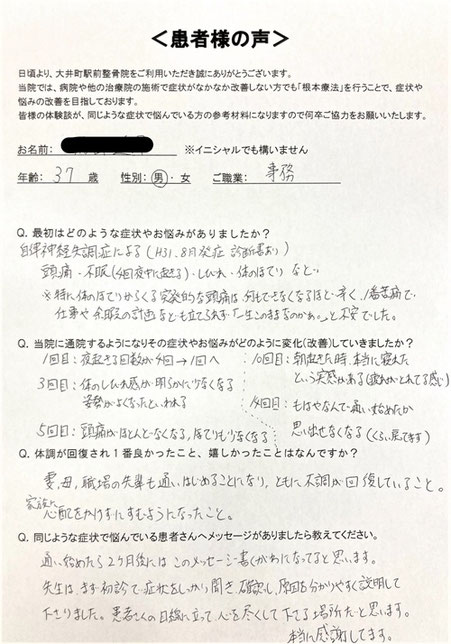 ＜患者様の声＞
日頃より、大井町駅前整骨院をご利用いただき誠にありがとうございます。
当院では、病院や他の治療院の施術で症状がなかなか改善しない方でも「根本療法」を行うことで、症状や
悩みの改善を目指しております。
皆様の体験談が、同じような症状で悩んでいる方の参考材料になりますので何卒ご協力をお願いいたします。
お名前： ※イニシャルでも構いません
年齢： 37 歳 性別：男・女 ご職業： 事務
Q. 最初はどのような症状やお悩みがありましたか？
自律神経失調症による（H31.8月発症 診断書あり）
頭痛・不眠（4回夜中に起きる）・しびれ・体のほてり など…
※特に体のほてりからくる突発的な頭痛は何もできなくなるほど辛く、1番苦痛で
仕事や余暇の計画なども立てられず「一生このままなのかぁ。」と不安でした。
Q. 当院に通院するようになりその症状やお悩みがどのように変化(改善)していきましたか？
1回目：夜起きる回数が4回→1回へ
3回目：体のしびれ感が明らかに少なくなる
姿勢がよくなったといわれる
5回目：頭痛がほとんどなくなる，ほてりも少なくなる
10回目：朝起きた時、本当に寝れた
という実感がある（疲れがとれてる感じ）
14回目：もはやなんで通い始めたか
思い出せなくなる（くらい元気です）
Q. 体調が回復され１番良かったこと、嬉しかったことはなんですか？
妻，母，職場の先輩も通いはじめることになり，ともに不調が回復していること。
家族に心配をかけずにすむようになったこと。
Q. 同じような症状で悩んでいる患者さんへメッセージがありましたら教えてください。
通い始めたら2ヶ月後にはこのメッセージ書くかわになってると思います。
先生は、まず初診で症状をしっかり聞き、確認し、原因を分かりやすく説明して
下さりました。患者さんの目線に立って、心を尽くして下さる場所だと思います。
本当に感謝してます。